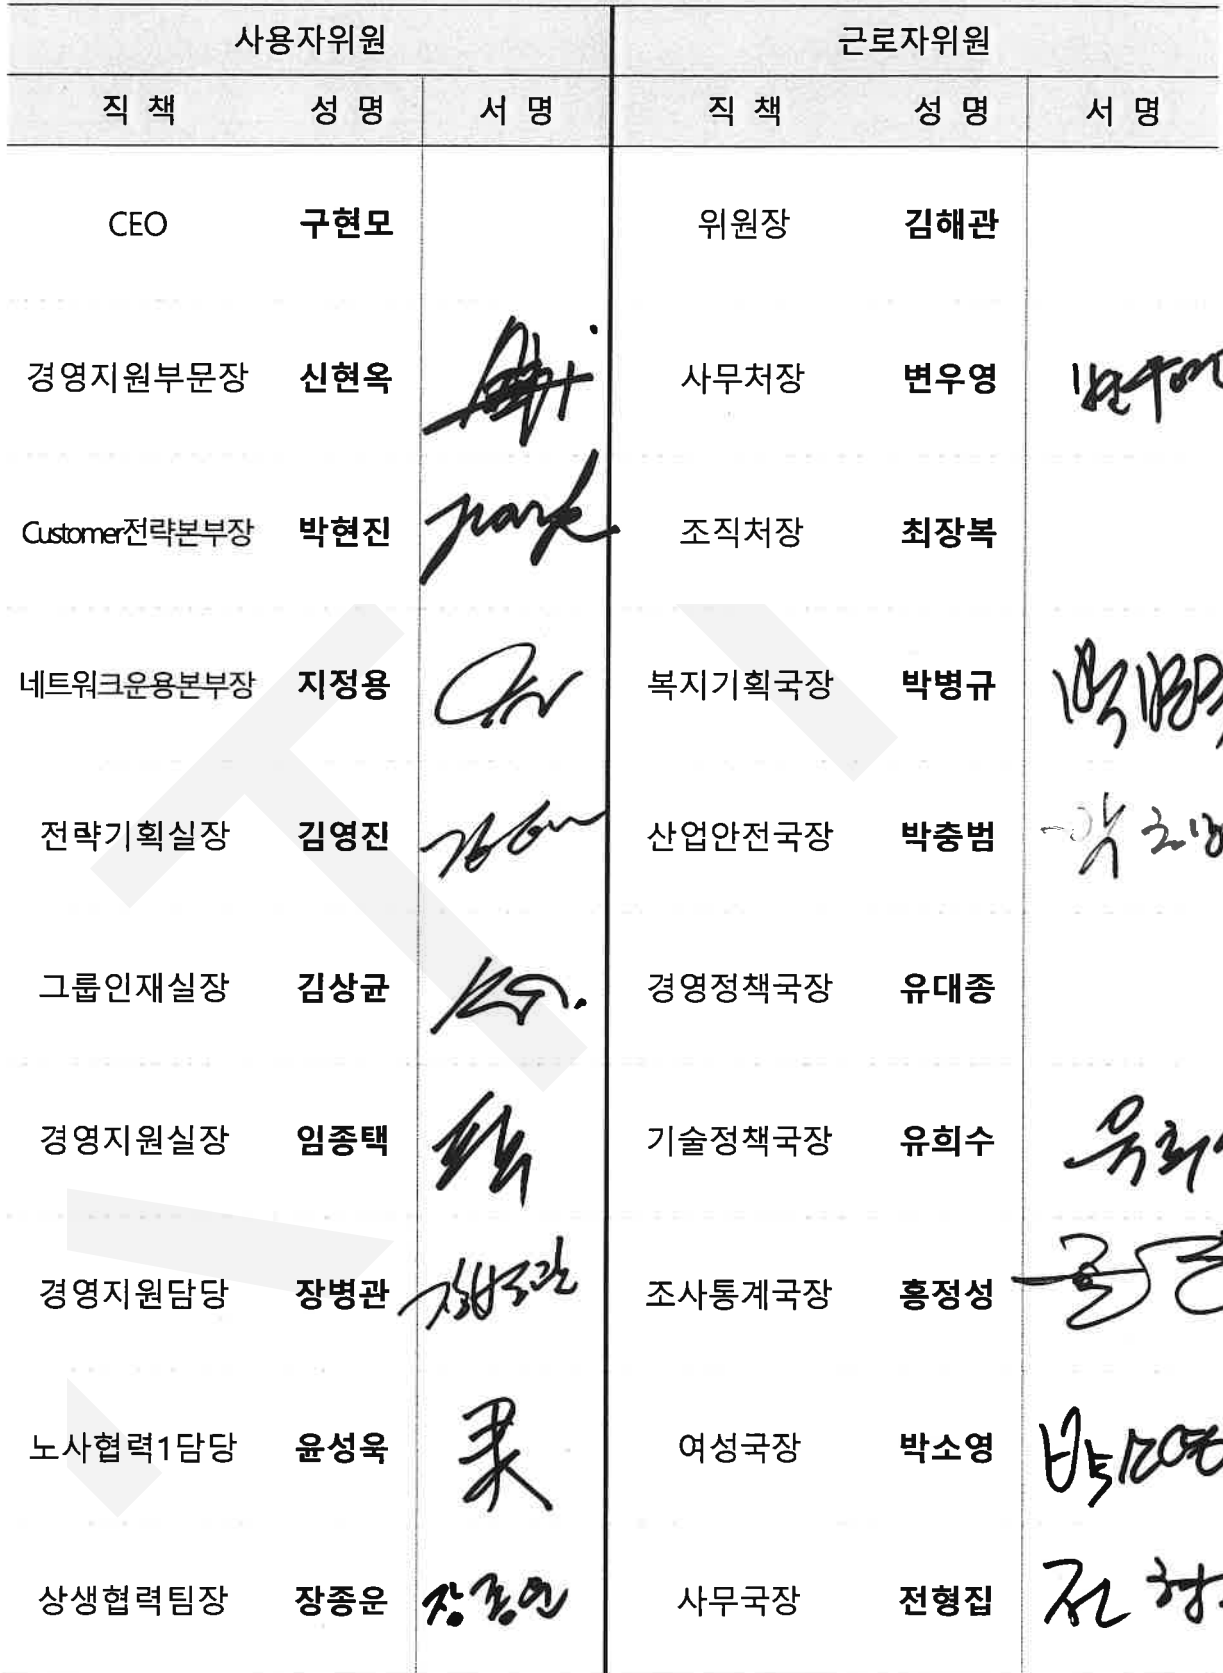 사용자위원 근로자위원
직 책 성 명 서 명 직 책 성 명 서 명
CEO 구현모 위원장 김해관
경영지원부문장 신현옥 사무처장 변우영 변우영
Customer전략본부장 박현진 park 조직처장 최장복
네트워크운용본부장 지정용 복지기획국장 박병규 박병규
전략기획실장 김영진 산업안전국장 박충범
그룹인재실장 김상균 경영정책국장 유대종
경영지원실장 임종택 기술정책국장 유희수
경영지원담당 장병관 장병관 조사통계국장 홍정성
노사협력1담당 윤성욱 여성국장 박소영 박소영
상생협력팀장 장종운 장종운 사무국장 전형집 전형